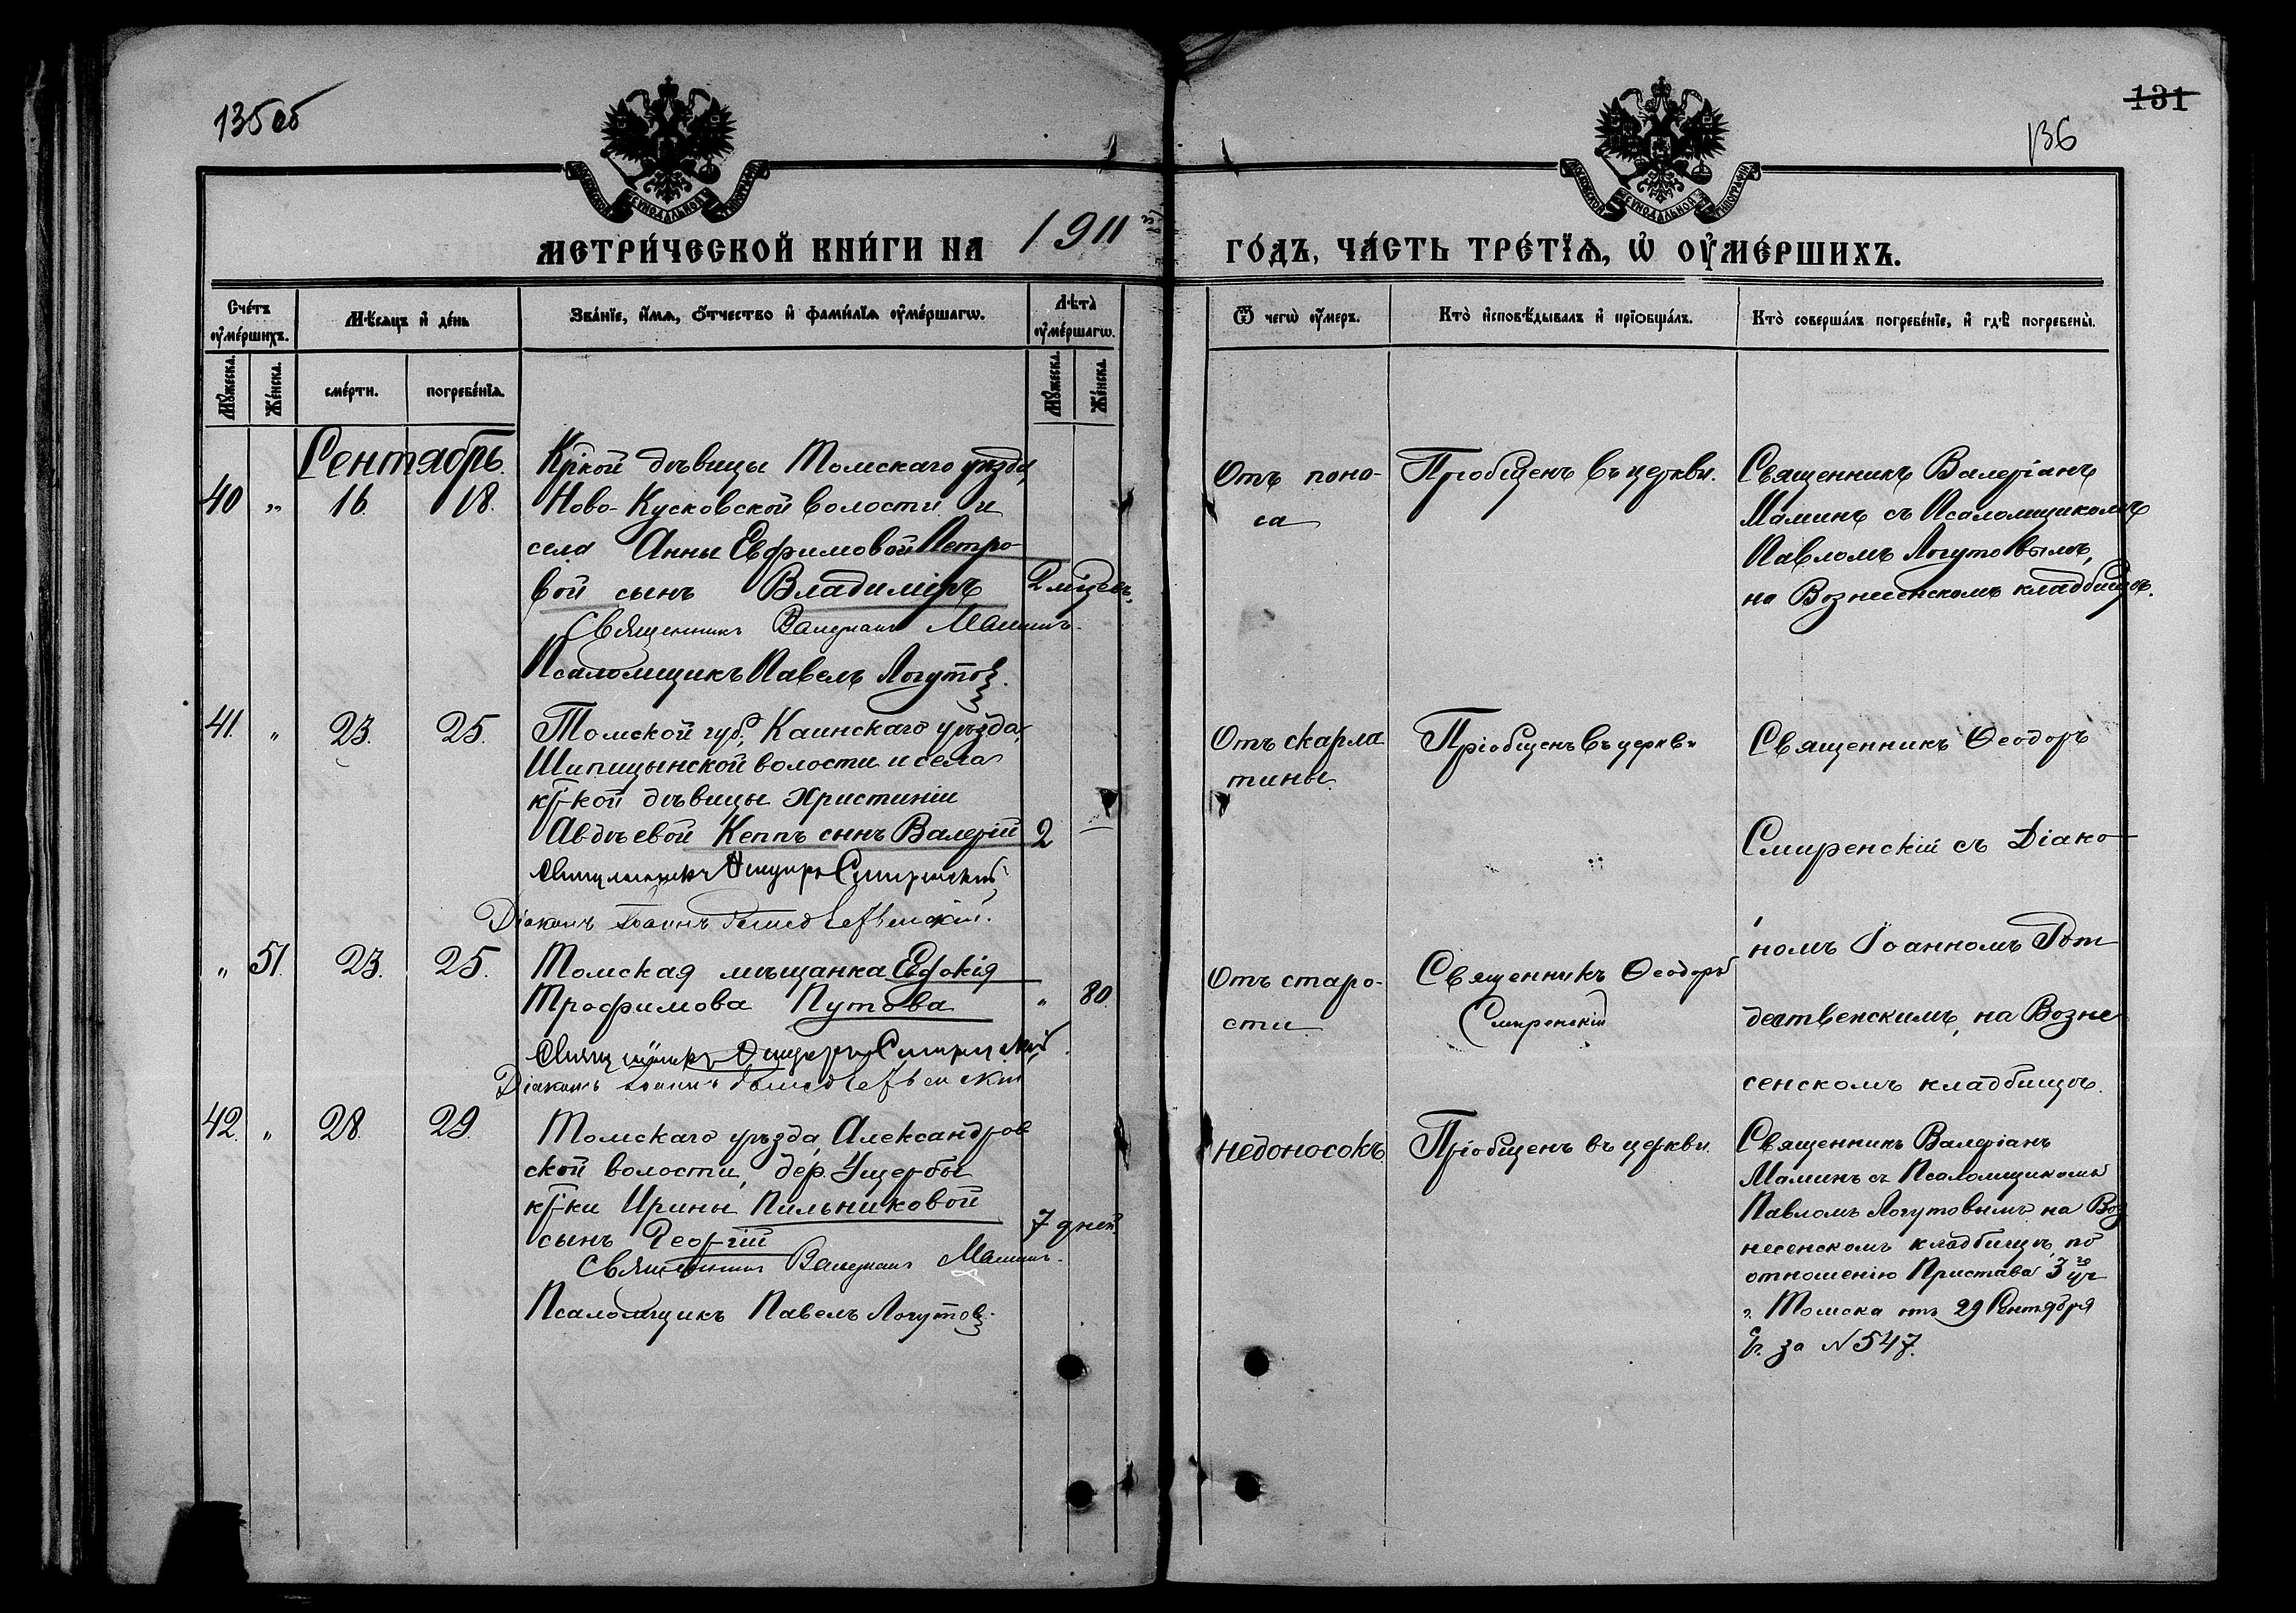 135об
131
136
МОСКОВСКОЙ СѴНОДАЛЬНОЙ ТИПОГРАФІИ
МОСКОВСКОЙ СѴНОДАЛЬНОЙ ТИПОГРАФІИ
МЕТРИ́ЧЕСКОЙ КНИ́ГИ НА 1911й ГО́ДЪ, ЧА́СТЬ ТРЕ́ТЇѦ, Ѡ҆ ОУ҆МЕ́РШИХЪ.
Сче́тъ оу҆ме́ршихъ.
Мѣ́сѧцъ и҆ де́нь
Зва́нїе, и҆́мѧ, ѻ҆́тчество и҆ фами́лїѧ оу҆ме́ршагѡ.
Лѣ́та оу҆ме́ршагѡ.
Ѿ чегѡ̀ оу҆́меръ.
Кто̀ и҆сповѣ́дывалъ и҆ прїѡбща́лъ.
Кто̀ соверша́лъ погребе́нїе, и҆ гдѣ̀ погребены̀.
Мꙋ́жеска.
Же́нска.
сме́рти.
погребе́нїѧ.
Мꙋ́жеска.
Же́нска.
Сентябрь.
40 " 16. 18.
Кр̑кой дѣвицы Томскаго уѣзда,
Ново-Кусковской волости и
села Анны Евфимовой Петро-
вой сынъ Владиміръ 2 мѣсц.
Священникъ Валеріанъ Маминъ.
Псаломщикъ Павелъ Логутов.
Отъ поно-
са
Пріобщенъ въ церкви.
Священникъ Валеріанъ
Маминъ съ Псаломщикомъ
Павломъ Логутовымъ,
на Вознесенскомъ кладбищѣ.
41. " 23. 25.
Томской губ., Каинскаго уѣзда,
Шипицынской волости и села
кр-кой дѣвицы Христиніи
Авдѣевой Кеппъ сынъ Валерій 2 —
Священникъ Ѳеодоръ Смиренскій
Діаконъ Іоаннъ Рождественскій.
Отъ скарла
тины.
Пріобщенъ въ церкви
Священникъ Ѳеодоръ
Смиренскій съ Діако-
номъ Іоанномъ Рож-
дественскимъ, на Возне
сенскомъ кладбищѣ.
" 51. 23. 25.
Томская мѣщанка Евдокія
Трофимова Путова " 80.
Священникъ Ѳеодоръ Смиренскій
Діаконъ Іоаннъ Рождественскій
Отъ старо-
сти
Священникъ Ѳеодоръ
Смиренскій
42. " 28. 29.
Томскаго уѣзда, Александров
ской волости, дер. Ущербы
кр-ки Ирины Пильниковой
сынъ Георгій 7 дней.
Священникъ Валеріанъ Маминъ.
Псаломщикъ Павелъ Логутов.
недоносокъ.
Пріобщенъ въ церкви.
Священникъ Валеріанъ
Маминъ съ Псаломщикомъ
Павломъ Логутовымъ на Воз
несенскомъ кладбищѣ, по
отношенію Пристава 3го уч
г. Томска отъ 29 Сентября
с/г. за № 547.